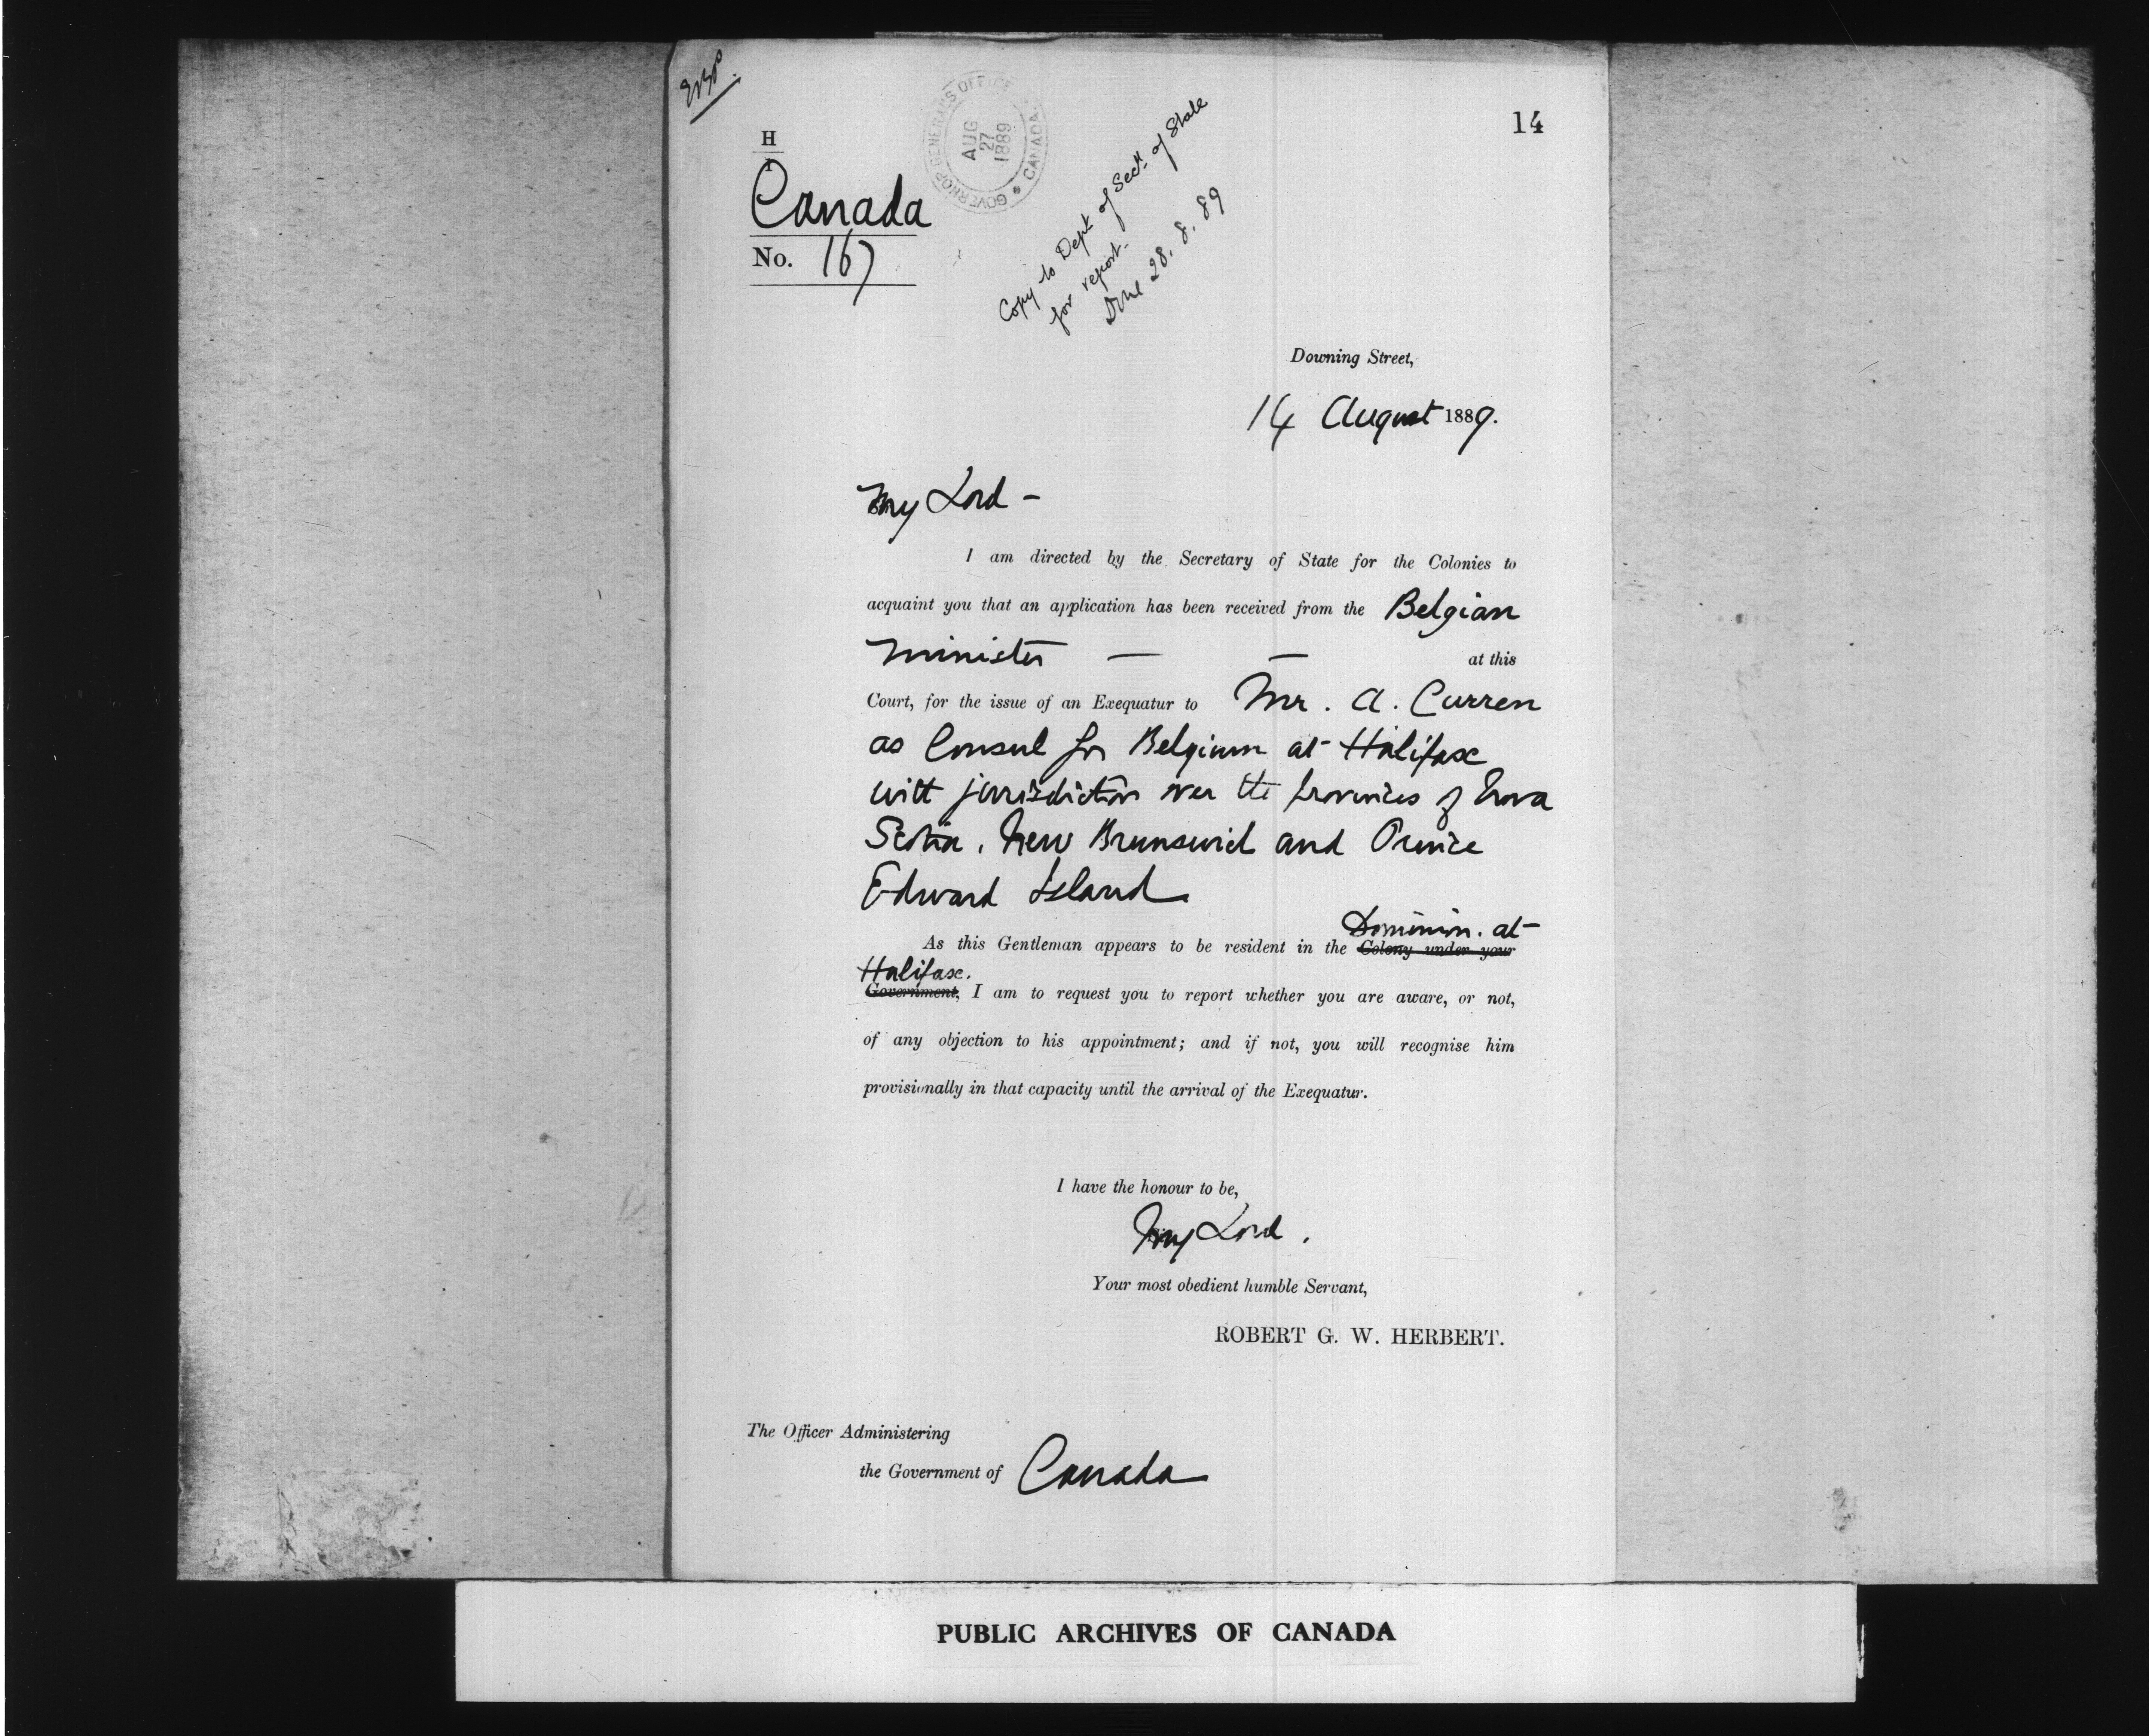 14
H
Canada
No. 167
GOVERNOR GENERAL'S OFFICE • CANADA
AUG
27
1889
Copy to Dept of Secy. of State
for report.
Done 28.8.89
Downing Street,
14 August 1889.
My Lord -
I am directed by the Secretary of State for the Colonies to
acquaint you that an application has been received from the Belgian
Minister — — at this
Court, for the issue of an Exequatur to Mr. A. Curren
as Consul for Belgium at Halifax
with jurisdiction over the provinces of Nova
Scotia, New Brunswick and Prince
Edward Island
Dominion. at
As this Gentleman appears to be resident in the Colony under your
Halifax.
Government, I am to request you to report whether you are aware, or not,
of any objection to his appointment; and if not, you will recognise him
provisionally in that capacity until the arrival of the Exequatur.
I have the honour to be,
My Lord,
Your most obedient humble Servant,
ROBERT G. W. HERBERT.
The Officer Administering
the Government of Canada
PUBLIC ARCHIVES OF CANADA